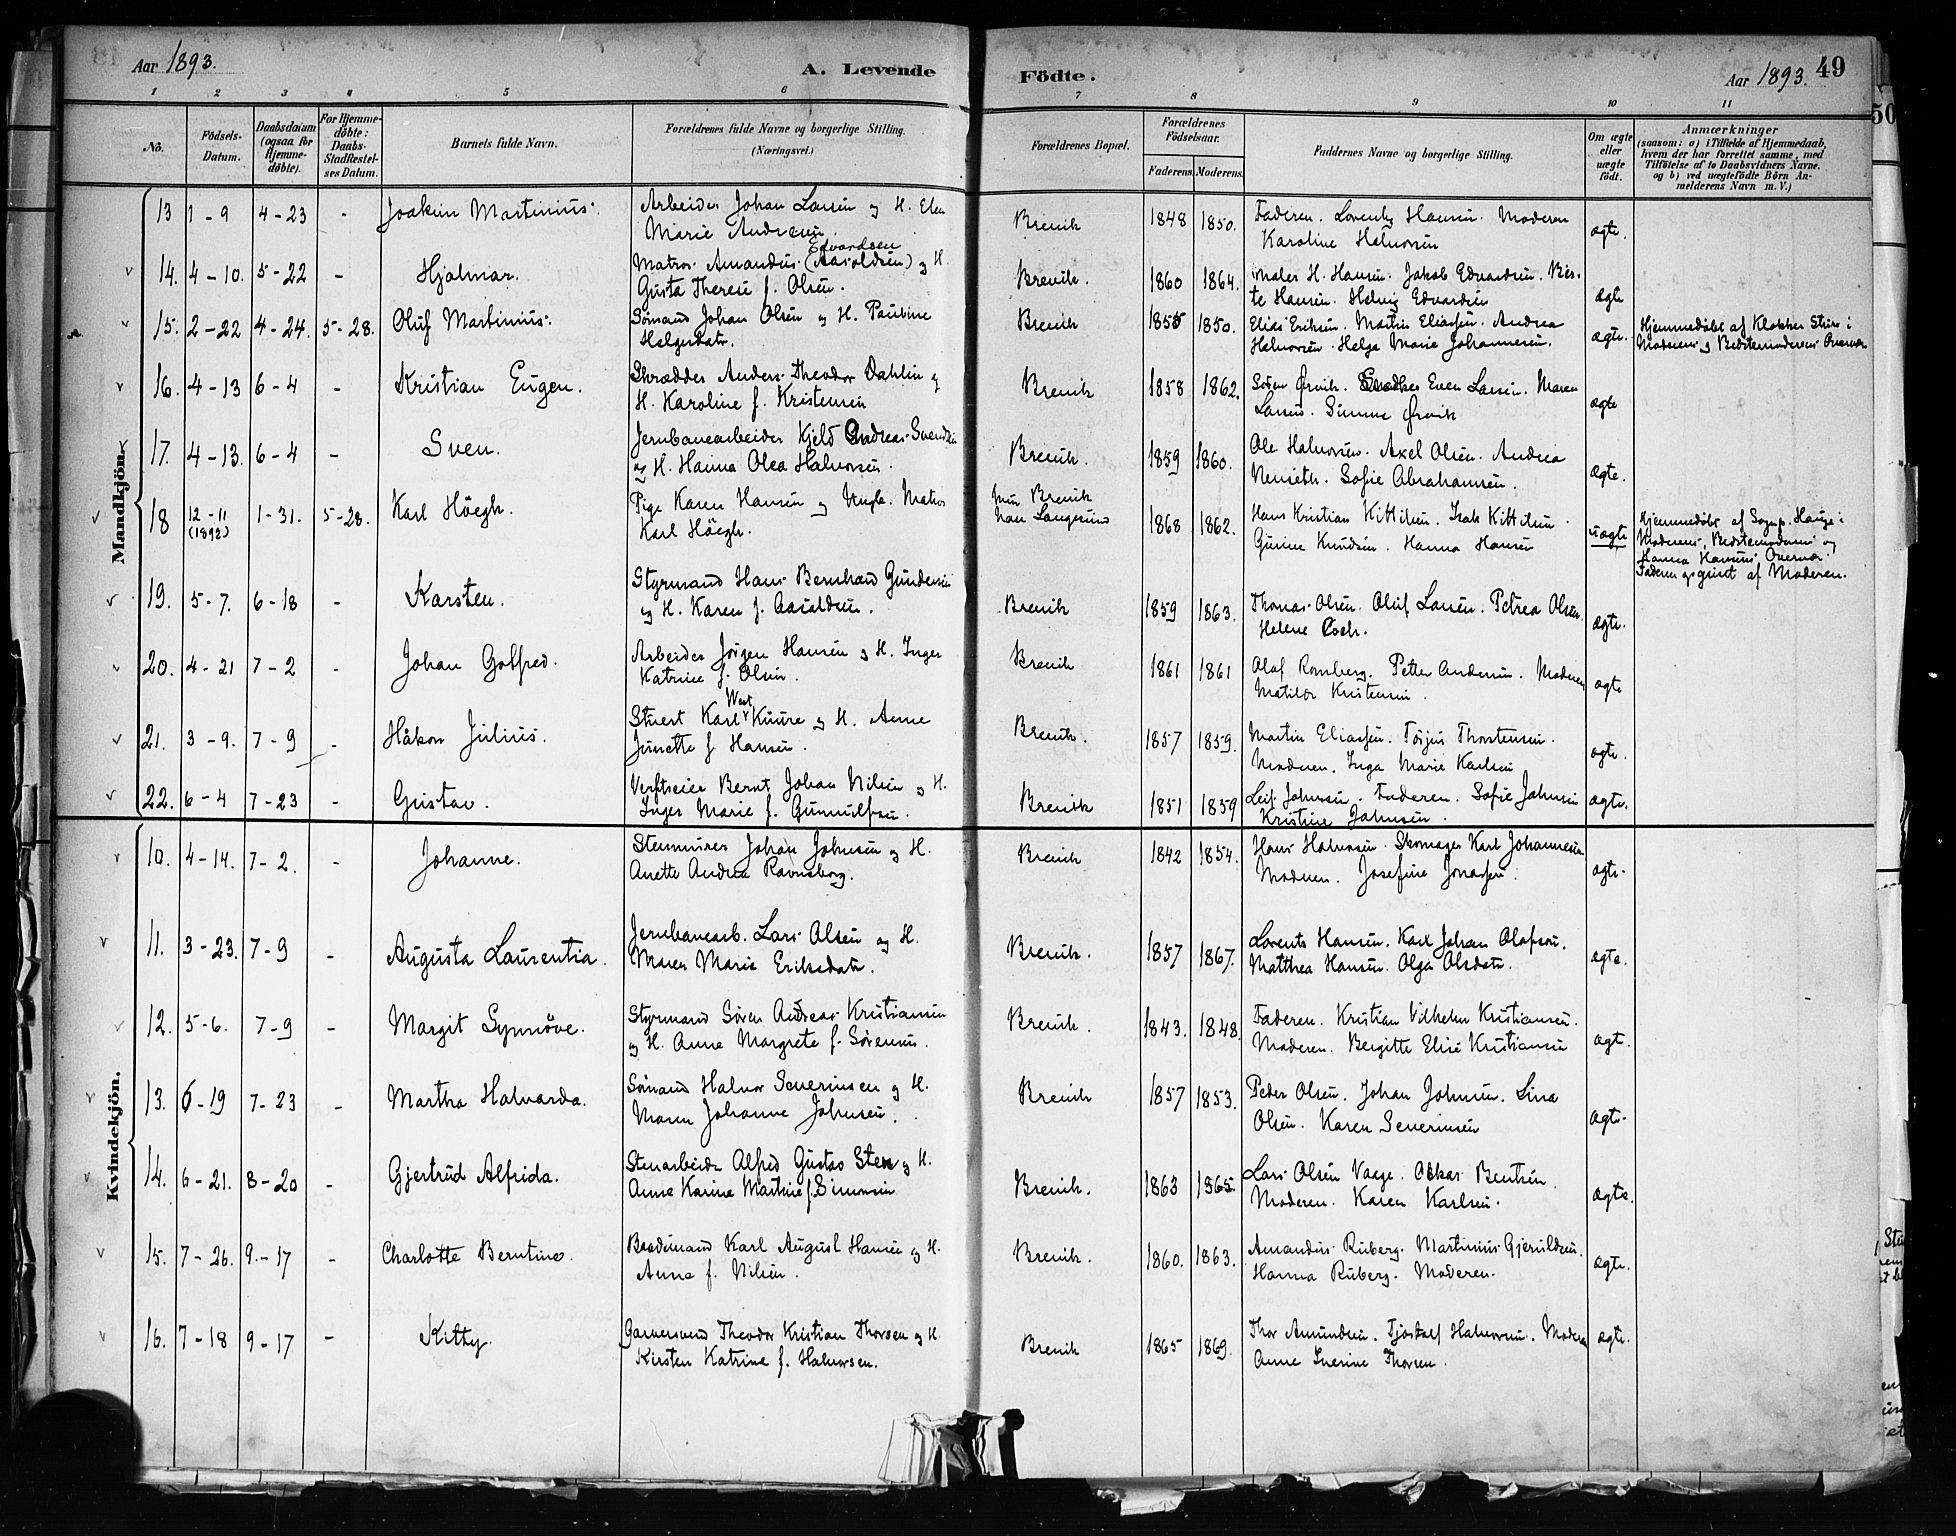 Aar 1893.
A. Levende
Födte.
Aar 1893.
49
50
1 2 3 4 5 6 7 8 9 10 11
No.
Födsels-Datum.
Daabsdatum (ogsaa for Hjemmedøbte).
For Hjemmedøbte: Daabs-Stadfestelses Datum.
Barnets fulde Navn.
Forældrenes fulde Navne og borgerlige Stilling.
(Næringsvei.)
Forældrenes Bopæl.
Forældrenes Födselsaar.
Faderens. Moderens.
Faddernes Navne og borgerlige Stilling.
Om ægte eller uægte født.
Anmærkninger
(saasom: a) i Tilfælde af Hjemmedaab, hvem der har forrettet samme, med Tilføielse af to Daabsvidners Navne, og b) ved uægtefødte Börn Anmelderens Navn m. V.)
Mandkjön.
13 1-9 4-23 - Joakim Martinius. Arbeider Johan Larsen og H. Elen Brevik 1848 1850. Faderen. Lorents Hansen. Moderen ægte.
Marie Andresen. Karoline Halvorsen
Edvardsen
14. 4-10. 5-22 - Hjalmar. Matros Amandus (Aasoldsen) og H. Brevik. 1860 1864. Maler H. Hansen. Jakob Edvardsen. Ber- ægte
Gusta Therese f. Olsen. te Hansen. Helvig Edvardsen
15. 2-22 4-24. 5-28. Oluf Martinius. Sömand Johan Olsen og H. Pauline Brevik 1855 1850. Elias Eriksen. Martin Eliassen. Andrea ægte. Hjemmedøbt af Klokker Stern i
Helgesdatr. Halvorsen. Helga Marie Johannesen. Moderens og Bedstemoderens Overvær
16. 4-13 6-4 - Kristian Eugen. Skrædder Anders Theodor Dahlin og Brevik 1858 1862. Søren Ørvik. Snedker Even Larsen. Maren ægte
H. Karoline f. Kristensen Larsen. Simine Ørvik
17. 4-13. 6-4 - Sven. Jernbanearbeider Kjeld Andreas Svendsen Brevik. 1859 1860. Ole Halvorsen. Axel Olsen. Andrea ægte.
og H. Hanna Olea Halvorsen. Sofie Abrahamsen.
18 12-11 (1892) 1-31. 5-28. Karl Höegh. Pige Karen Hansen og Ungk. Matros hun Brevik 1868 1862. Hans Kristian Kittilsen. Isak Kittilsen uægte Hjemmedøbt af Sognep. Hauge i
Karl Höegh. han Langesund Gurine Knudsen. Hanna Hansen Moderens, Bedstemoderens og
Hanna Hansens Overvær.
Faderen opgivet af Moderen.
19. 5-7. 6-18 - Karsten. Styrmand Hans Bernhard Gundersen Brevik 1859 1863. Thomas Olsen. Oluf Larsen. Petrea Olsen. ægte.
og H. Karen f. Aasoldsen. Helene Coch.
20. 4-21 7-2 - Johan Gotfred. Arbeider Jörgen Hansen og H. Inger Brevik 1861 1861 Olaf Romberg. Petter Andersen. Moderen ægte
Katrine f. Olsen. Matilde Kristensen.
21. 3-9. 7-9 - Håkon Julius. Stuert Karl West Kuure og H. Anne Brevik. 1857 1859. Martin Eliassen. Torjus Thorstensen. ægte.
Junette f Hansen. Moderen. Inga Marie Karlsen
22. 6-4 7-23 - Gustav. Verftseier Bernt Johan Nilsen og H. Brevik 1851 1859 Leif Johnsen. Faderen. Sofie Johnsen ægte.
Inger Marie f. Gunnulfsen. Kristine Johnsen.
Kvindekjön.
10. 4-14. 7-2. - Johanne. Stenmurer Johan Johnsen og H. Brevik 1842 1854. Hans Halvorsen. Skomager Karl Johannesen ægte.
Anette Andrea Ravnsborg. Moderen. Josefine Jonassen.
11. 3-23. 7-9 - Augusta Laurentia. Jernbanearb. Lars Olsen og H. Brevik. 1857 1867. Lorents Hansen. Karl Johan Olafsen. ægte.
Maren Marie Eriksdatr. Matthea Hansen. Olga Olsdatr.
12. 5-6. 7-9 - Margit Synnöve. Styrmand Sören Andreas Kristiansen Brevik. 1843. 1848. Faderen. Kristian Vilhelm Kristiansen. ægt.
og H. Anne Margrete f. Sørensen. Moderen. Bergitte Elise Kristiansen
13. 6-19 7-23 - Martha Halvarda. Sömand Halvor Severinsen og H. Brevik 1857 1853. Peder Olsen. Johan Johnsen. Lina ægte.
Maren Johanne Johnsen. Olsen. Karen Severinsen
14. 6-21. 8-20 - Gjertrud Alfrida. Stenarbeider Alfred Gustav Sten og H. Brevik. 1863 1865. Lars Olsen Vaage. Oskar Bentsen ægte.
Anna Karine Martine f. Simonsen Moderen. Karen Karlsen.
15. 7-26. 9-17 - Charlotte Berntine. Baadsmand Karl August Hansen og H. Brevik. 1860. 1863. Amandus Ruberg. Martinius Gjeruldsen. ægte.
Anna f. Nilsen. Hanna Ruberg. Moderen.
16. 7-18 9-17 - Kitty. Garversvend Theodor Kristian Thorsen og H. Brevik 1865 1869. Thor Amundsen. Tjostolf Halvorsen. Moderen ægte.
Kirsten Katrine f. Halvorsen. Anne Severine Thorsen.